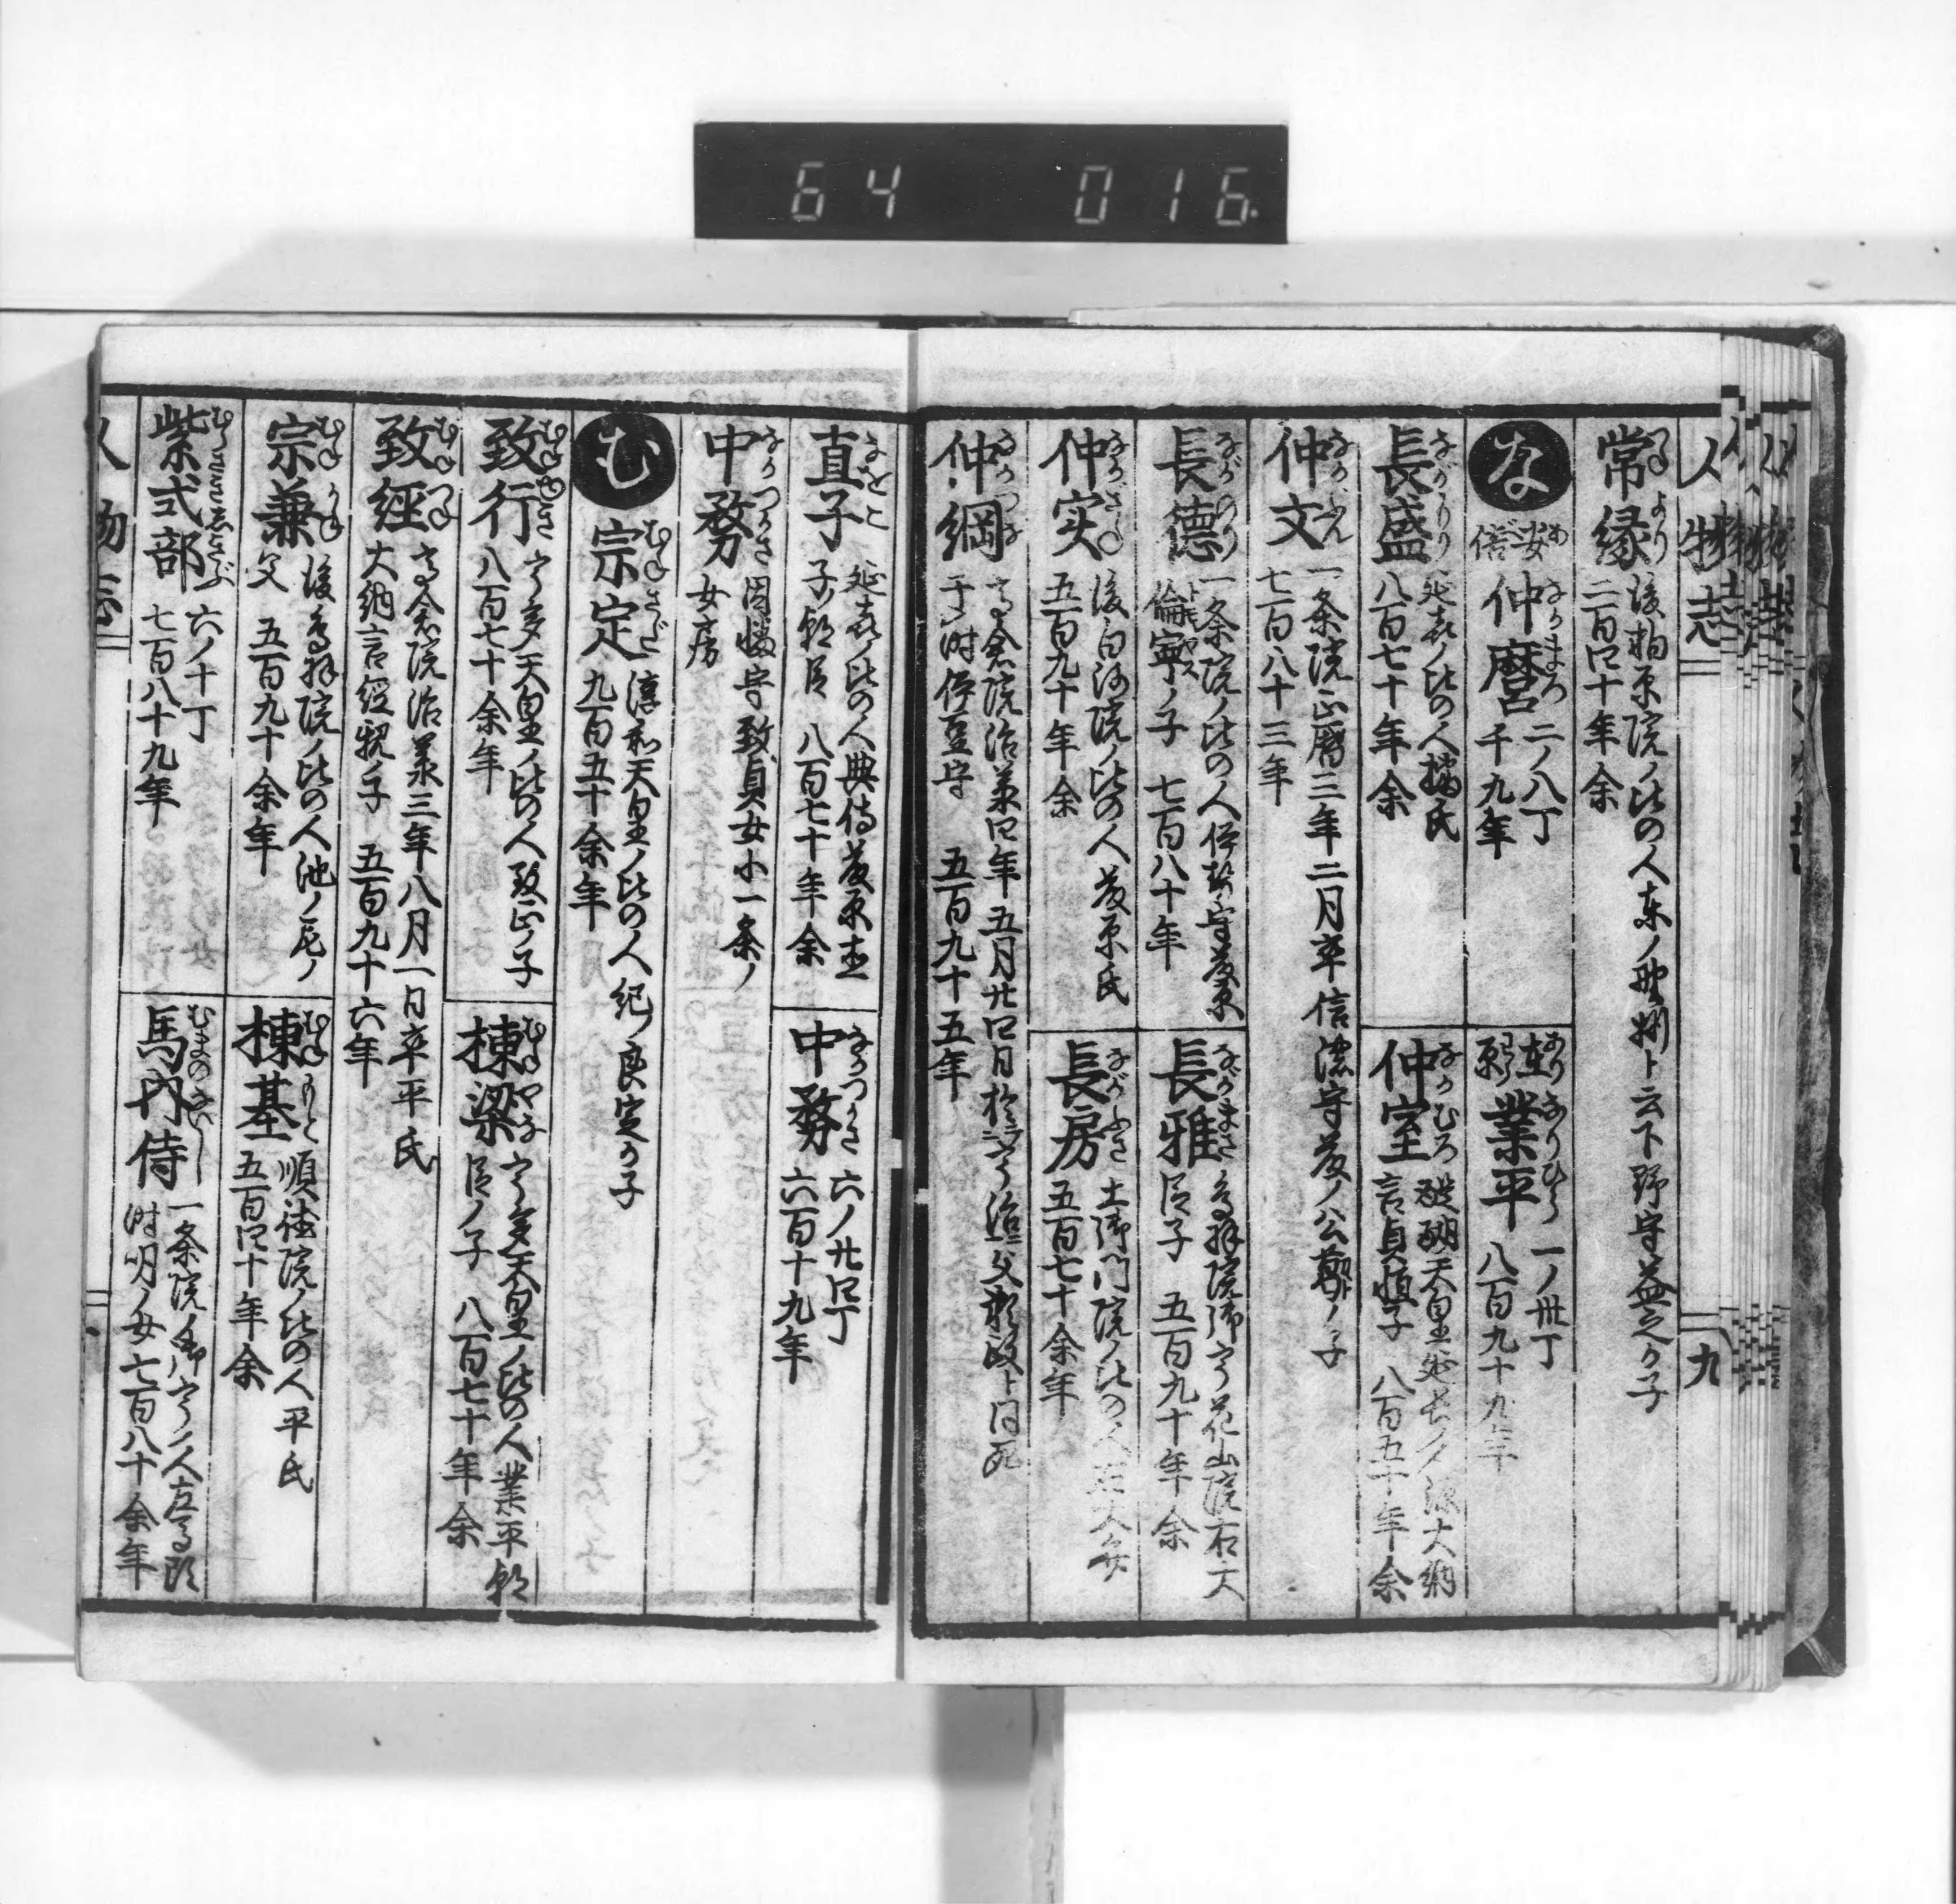 64 016
人物志
九
常縁 つねより
後柏原院ノ比の人東ノ野州ト云下野守益之ゟ子
二百四十年余
な
安倍 仲麿 なかまろ
二ノ八丁
千九年
在原 業平 ありひら
一ノ卅丁
八百九十九年
長盛 ながもり
延喜ノ比の人橘氏
八百七十年余
仲室 なかむろ
醍醐天皇延長ノ源大納
言貞恒子 八百五十年余
仲文 なかぶん
一条院正暦三年二月卒信濃守藤ノ公葛ノ子
七百八十三年
長徳 ながのり
一条院ノ比の人伊勢守藤原
倫寧ノ子 七百八十年
長雅 ながまさ
鳥羽院御宇花山院右大
臣子 五百九十年余
仲実 なかざね
後白河院ノ比の人藤原氏
五百九十年余
長房 ながふさ
土御門院ノ比の人
五百七十余年
仲綱 なかつな
高倉院治承四年五月廿四日於宇治父頼政ト同死
于時伊豆守 五百九十五年
直子 なをこ
延喜ノ比の人典侍藤原
子朝臣 八百七十年余
中務 なかつかさ
六ノ廿四丁
六百十九年
中務 なかつかさ
因幡守致貞女小一条ノ
女房
む
宗定 むねさだ
淳和天皇ノ比の人紀ノ良定ゟ子
九百五十余年
致行 むねゆき
宇多天皇ノ比の人致正ノ子
八百七十余年
棟梁 むねやな
宇多天皇ノ比の人業平朝
臣ノ子 八百七十年余
致經 むねつね
高倉院治承三年八月一日卒平氏
大納言經親ノ子 五百九十六年
宗兼 むねかね
後鳥羽院ノ比の人池ノ尼ノ
父 五百九十余年
棟基 むねもと
順徳院ノ比の人平氏
五百四十年余
紫式部 むらさきしきぶ
六ノ十丁
七百八十九年
馬内侍 むまのないし
一条院ノ御宇ノ人左馬頭
時明ノ女七百八十余年
人物志